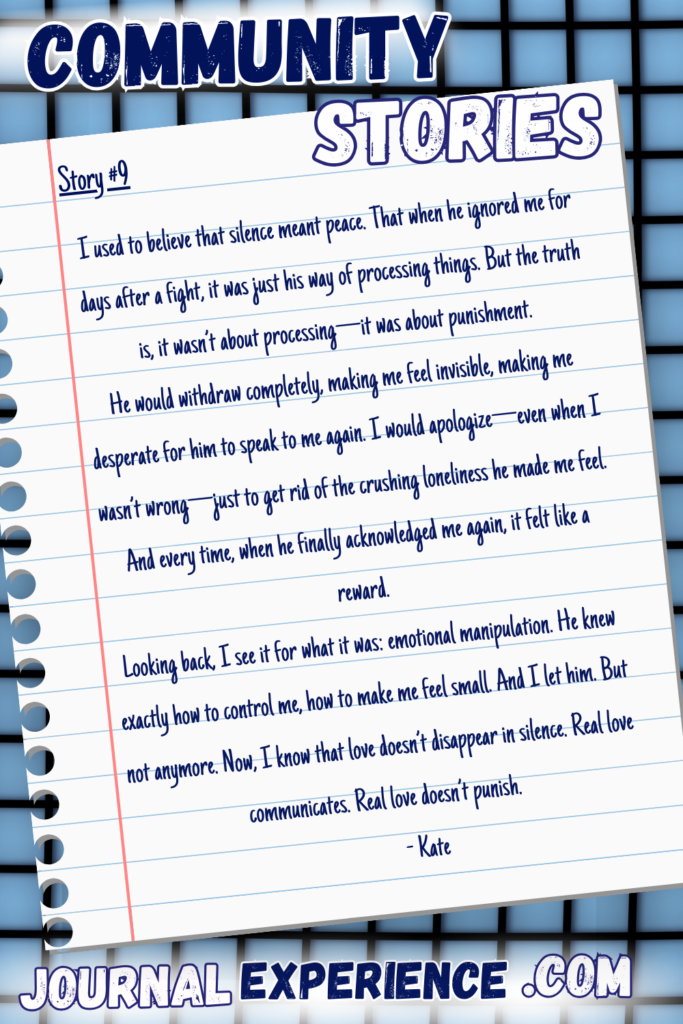 COMMUNITY
STORIES
Story #9
I used to believe that silence meant peace. That when he ignored me for
days after a fight, it was just his way of processing things. But the truth
is, it wasn't about processing—it was about punishment.
He would withdraw completely, making me feel invisible, making me
desperate for him to speak to me again. I would apologize—even when I
wasn't wrong—just to get rid of the crushing loneliness he made me feel.
And every time, when he finally acknowledged me again, it felt like a
reward.
Looking back, I see it for what it was: emotional manipulation. He knew
exactly how to control me, how to make me feel small. And I let him. But
not anymore. Now, I know that love doesn't disappear in silence. Real love
communicates. Real love doesn't punish.
- Kate
JOURNAL EXPERIENCE .COM